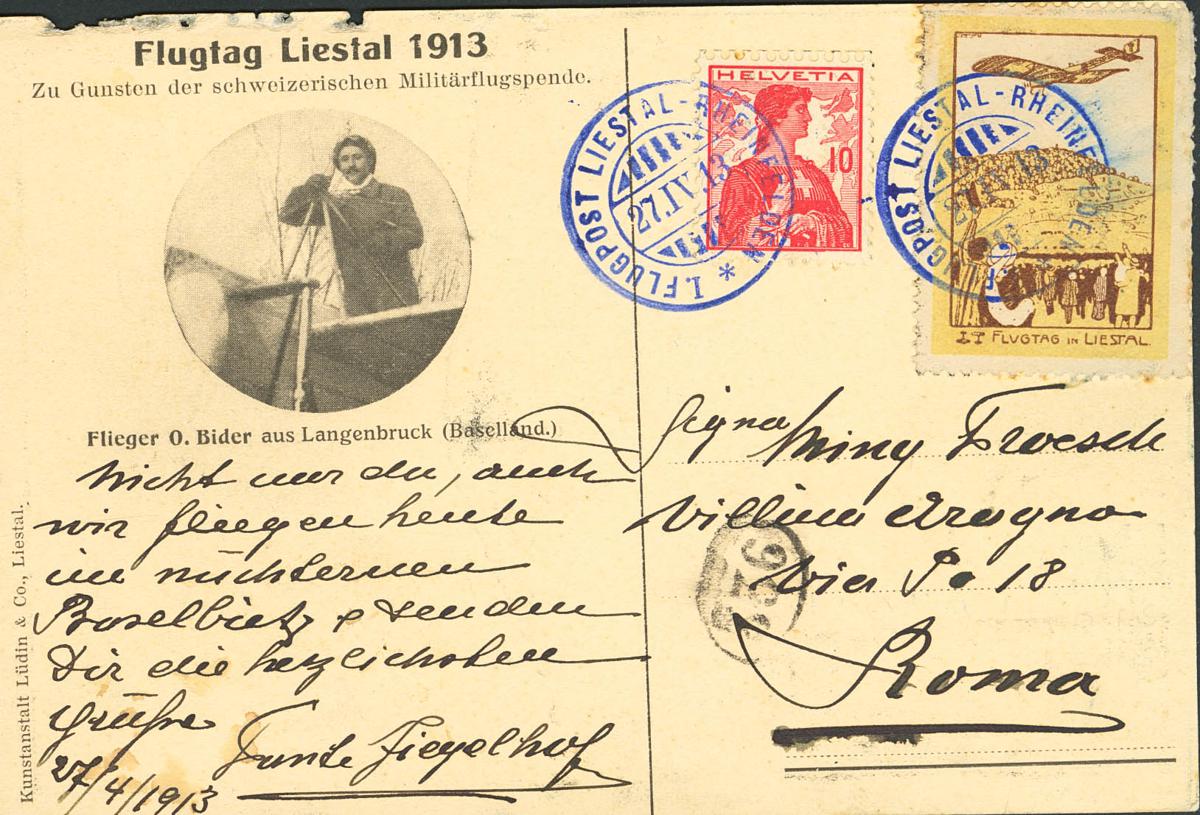 Flugtag Liestal 1913
Zu Gunsten der schweizerischen Militärflugspende.
Flieger O. Bider aus Langenbruck (Baselland.)
Nicht nur du, auch
wir fliegen heute
im nüchternen
Baselbietz & senden
Dir die herzlichsten
Grüße
27/4/1913
Tante Ziegelhof
Kunstanstalt Lüdin & Co., Liestal.
HELVETIA
10
I. FLUGPOST LIESTAL-RHEINFELDEN *
27.IV.13
I. FLUGPOST LIESTAL-RHEINFELDEN
27.IV.13
FLUGTAG IN LIESTAL.
Signa Miny Froesch
Villina Aragno
Via Po 18
Roma